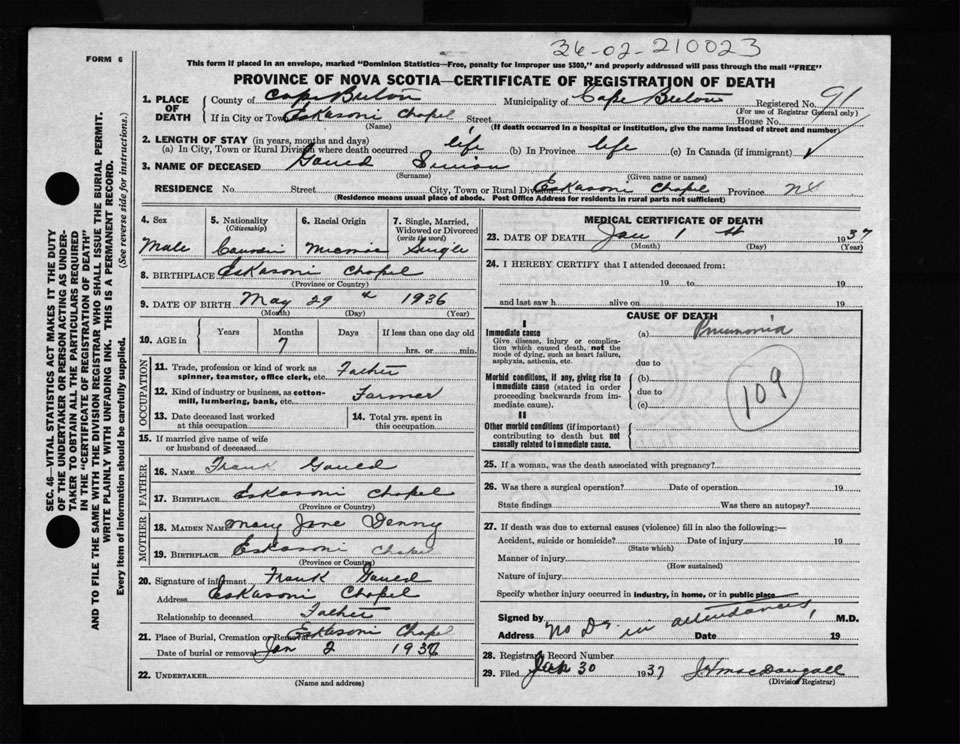 36-02-210023
FORM 6
This form if placed in an envelope, marked "Dominion Statistics—Free, penalty for improper use $300," and properly addressed will pass through the mail "FREE"
PROVINCE OF NOVA SCOTIA—CERTIFICATE OF REGISTRATION OF DEATH
SEC. 46—VITAL STATISTICS ACT MAKES IT THE DUTY
OF THE UNDERTAKER OR PERSON ACTING AS UNDER-
TAKER "TO OBTAIN ALL THE PARTICULARS REQUIRED
IN THE "CERTIFICATE OF REGISTRATION OF DEATH"
AND TO FILE THE SAME WITH THE DIVISION REGISTRAR WHO SHALL ISSUE THE BURIAL PERMIT.
WRITE PLAINLY WITH UNFADING INK. THIS IS A PERMANENT RECORD.
Every item of information should be carefully supplied. (See reverse side for instructions.)
1. PLACE OF DEATH County of Cape Breton Municipality of Cape Breton Registered No. 91
(For use of Registrar General only)
If in City or Town Eskasoni Chapel Street House No.
(Name) (If death occurred in a hospital or institution, give the name instead of street and number)
2. LENGTH OF STAY (in years, months and days)
(a) In City, Town or Rural Division where death occurred life (b) In Province life (c) In Canada (if immigrant)
3. NAME OF DECEASED Gould Simion
(Surname) (Given name or names)
RESIDENCE No. Street City, Town or Rural Division Eskasoni Chapel Province NS
(Residence means usual place of abode. Post Office Address for residents in rural parts not sufficient)
4. Sex 5. Nationality (Citizenship) 6. Racial Origin 7. Single, Married, Widowed or Divorced (write the word)
Male Canadin Micmac Single
8. BIRTHPLACE Eskasoni Chapel
(Province or Country)
9. DATE OF BIRTH May 29th 1936
(Month) (Day) (Year)
10. AGE in Years Months Days If less than one day old
7 hrs. or min.
OCCUPATION
11. Trade, profession or kind of work as spinner, teamster, office clerk, etc. Father
12. Kind of industry or business, as cotton-mill, lumbering, bank, etc. Farmer
13. Date deceased last worked at this occupation 14. Total yrs. spent in this occupation
15. If married give name of wife or husband of deceased
FATHER
16. NAME Frank Gould
17. BIRTHPLACE Eskasoni Chapel
(Province or Country)
MOTHER
18. MAIDEN NAME Mary Jane Denny
19. BIRTHPLACE Eskasoni Chapel
(Province or Country)
20. Signature of informant Frank Gould
Address Eskasoni Chapel
Relationship to deceased Father
21. Place of Burial, Cremation or Removal Eskasoni Chapel
Date of burial or removal Jan 2 1937
22. UNDERTAKER
(Name and address)
MEDICAL CERTIFICATE OF DEATH
23. DATE OF DEATH Jan 1 st 1937
(Month) (Day) (Year)
24. I HEREBY CERTIFY that I attended deceased from:
19 to 19
and last saw h alive on 19
CAUSE OF DEATH
I
Immediate cause (a) Pnumonia
Give disease, injury or complication which caused death, not the mode of dying, such as heart failure, asphyxia, asthenia, etc.
due to
Morbid conditions, if any, giving rise to immediate cause (stated in order proceeding backwards from immediate cause). (b)
due to
(c)
109
II
Other morbid conditions (if important) contributing to death but not causally related to immediate cause.
25. If a woman, was the death associated with pregnancy?
26. Was there a surgical operation? Date of operation 19
State findings Was there an autopsy?
27. If death was due to external causes (violence) fill in also the following:—
Accident, suicide or homicide? Date of injury 19
(State which)
Manner of injury
(How sustained)
Nature of injury
Specify whether injury occurred in industry, in home, or in public place
Signed by No Dr. in attendances, M.D.
Address Date 19
28. Registrars Record Number
29. Filed Jan 30 1937 J H MacDougall
(Division Registrar)